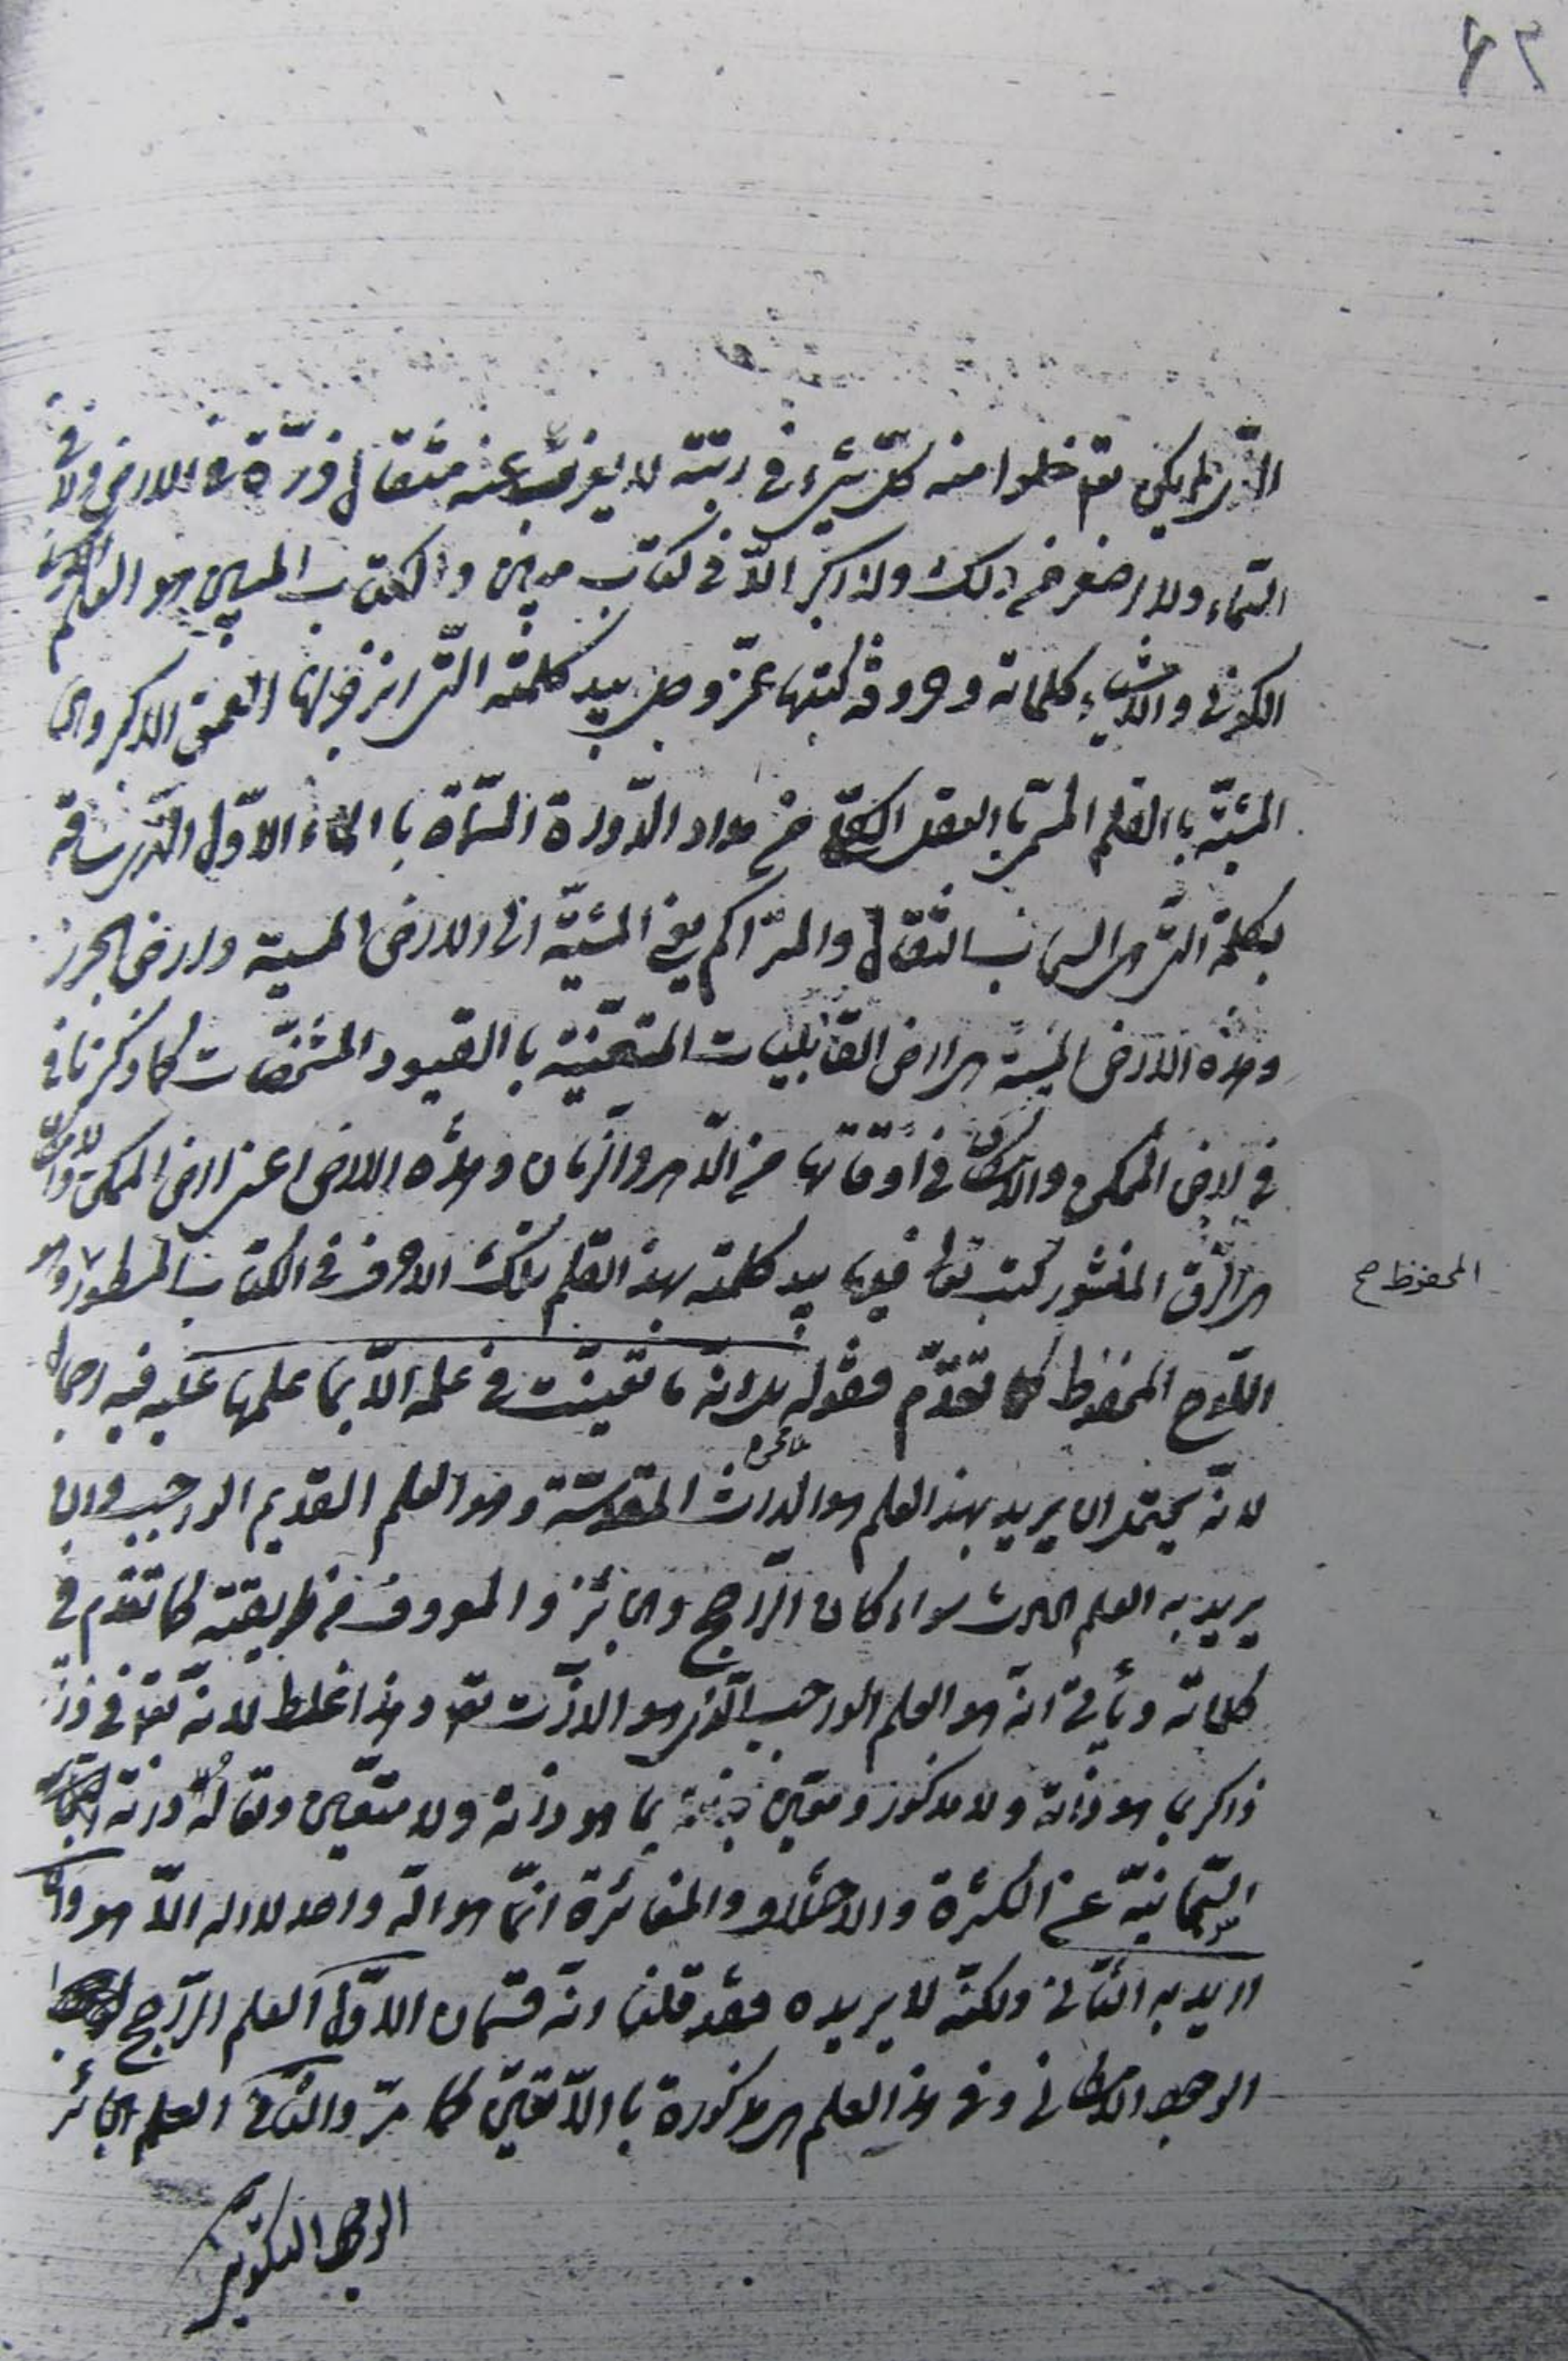 ٦٢
الذى لم يكن تعم خلوا منه كل شىء فى رتبته لا يعزب عنه مثقال ذرّة فى الارض ولا فى
السّماء ولا اصغر من ذلك ولا اكبر الّا فى كتاب مبين والكتاب المبين هو العلم
الكونى والاشياء كلماته وحروفه كتبها عزّ وجل بيد كلمته التى انزجر لها العمق الاكبر
المشيّة بالقلم المسمّى بالعقل الكلّى من مداد الدّواة المسمّاة بالماء الاوّل الذى ساقه
بكلمة التى هى السحاب الثقال والمتراكم يعنى المشيّة الى الارض الميتة وارض الجرز
وهذه الارض الميتة هى اراضى القابليات المتعيّنة بالقيود المشخّصات كما ذكرنا فى
فى ارض الممكن والامكان فى اوقاتها من الدّهر والزّمان وهذه الارض اعنى ارض الممكن والامكان
هى الرّق المنشور كتب تعالى فيها بيد كلمته بهذا القلم تلك الاحرف فى الكتاب المسطور وهو
المحفوظ صح
اللّوح المحفوظ كما تقدّم فقوله بل انّه ما تعيّنت فى علمه الّا بما علمها عليه فيه اجمال
لانّه يحتمل ان يريد بهذا العلم هو الذات المقدّسة وهو العلم القديم الواجب وان
يريد به العلم الحادث سواء كان الرّاجح والجائز والمعروف من طريقته كما تقدّم فى
كلماته ويأتى انّه هو العلم الواجب الّذى هو الذّات تعم وهذا غلط لانّه تعم فى
ذاكر بما هو ذاته ولا مذكور ومتعيّن بما هو ذاته ولا متعيّن وتعالى وذاته
عن الكثرة والاختلاف والمغائرة انّما هو اله واحد لا اله الّا هو وان
اريد به الثّانى ولكنّه لا يريده فقد قلنا انّه قسمان الاوّل العلم الرّاجح
الوجود الامكانى وفى هذا العلم هى مذكورة بالّا تعيّن كما مرّ والثّانى العلم الجائز
الوجود التكوينى